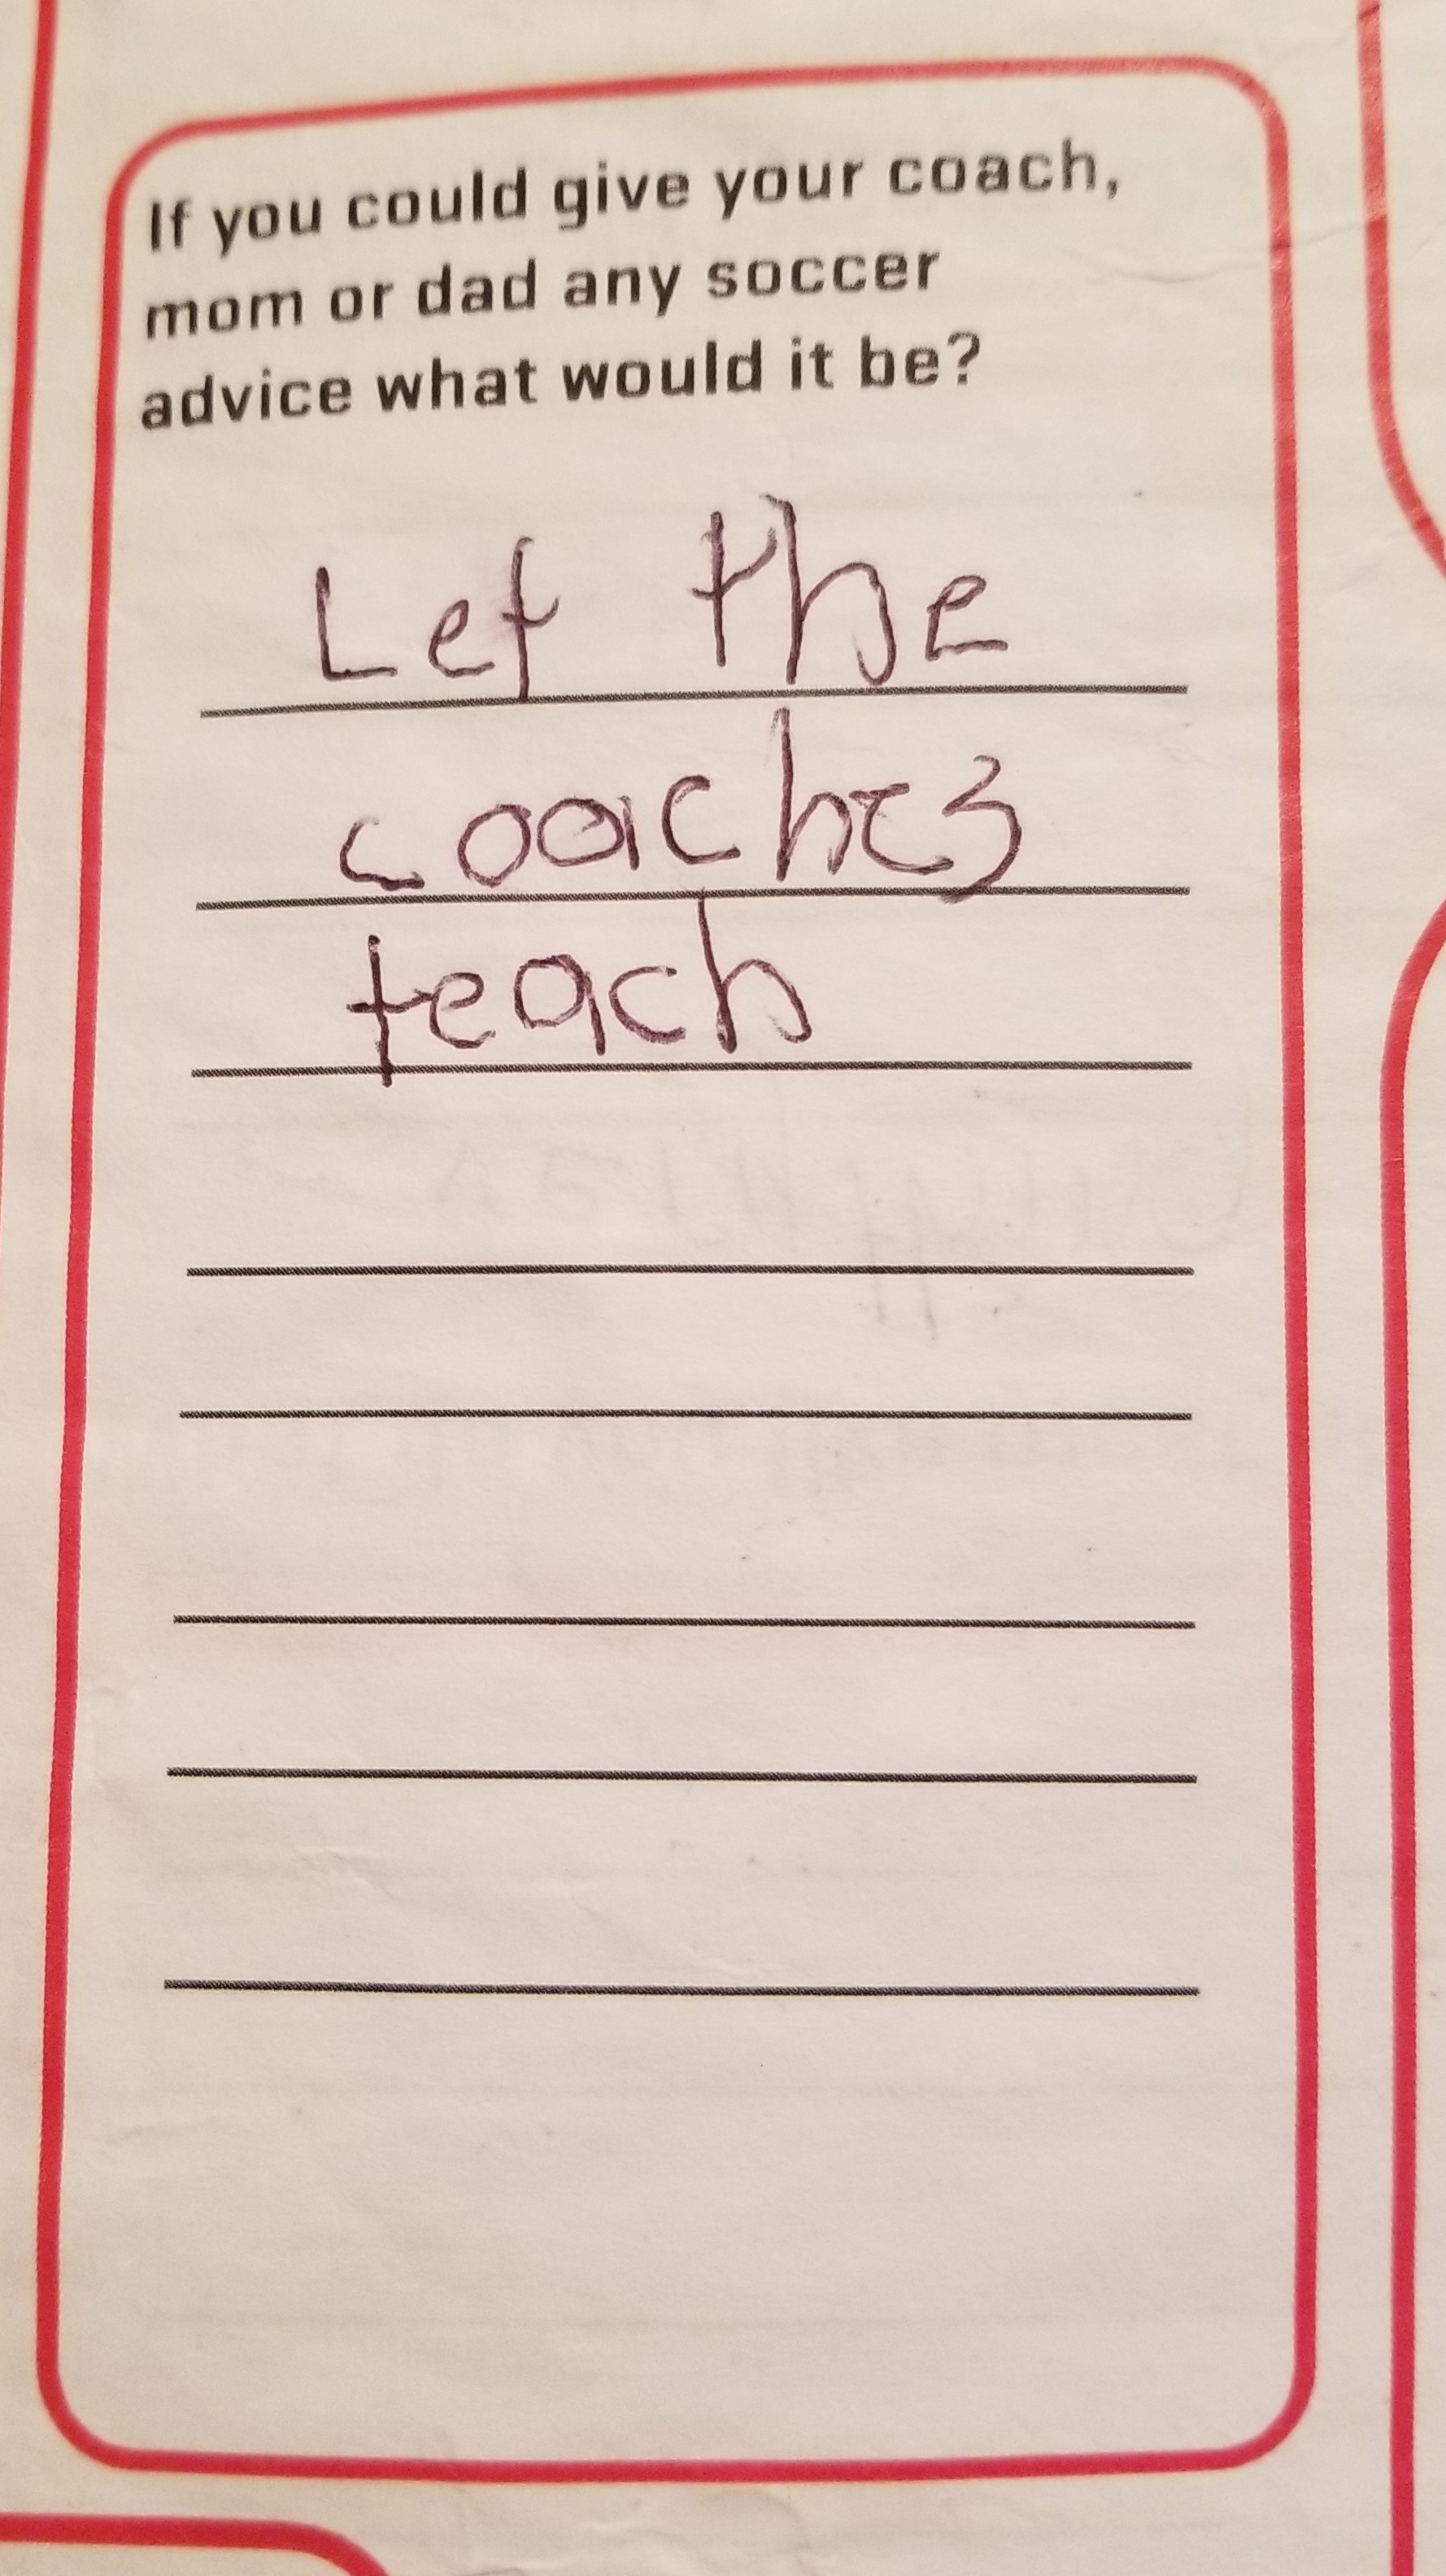 If you could give your coach,
mom or dad any soccer
advice what would it be?
Let the
coaches
teach